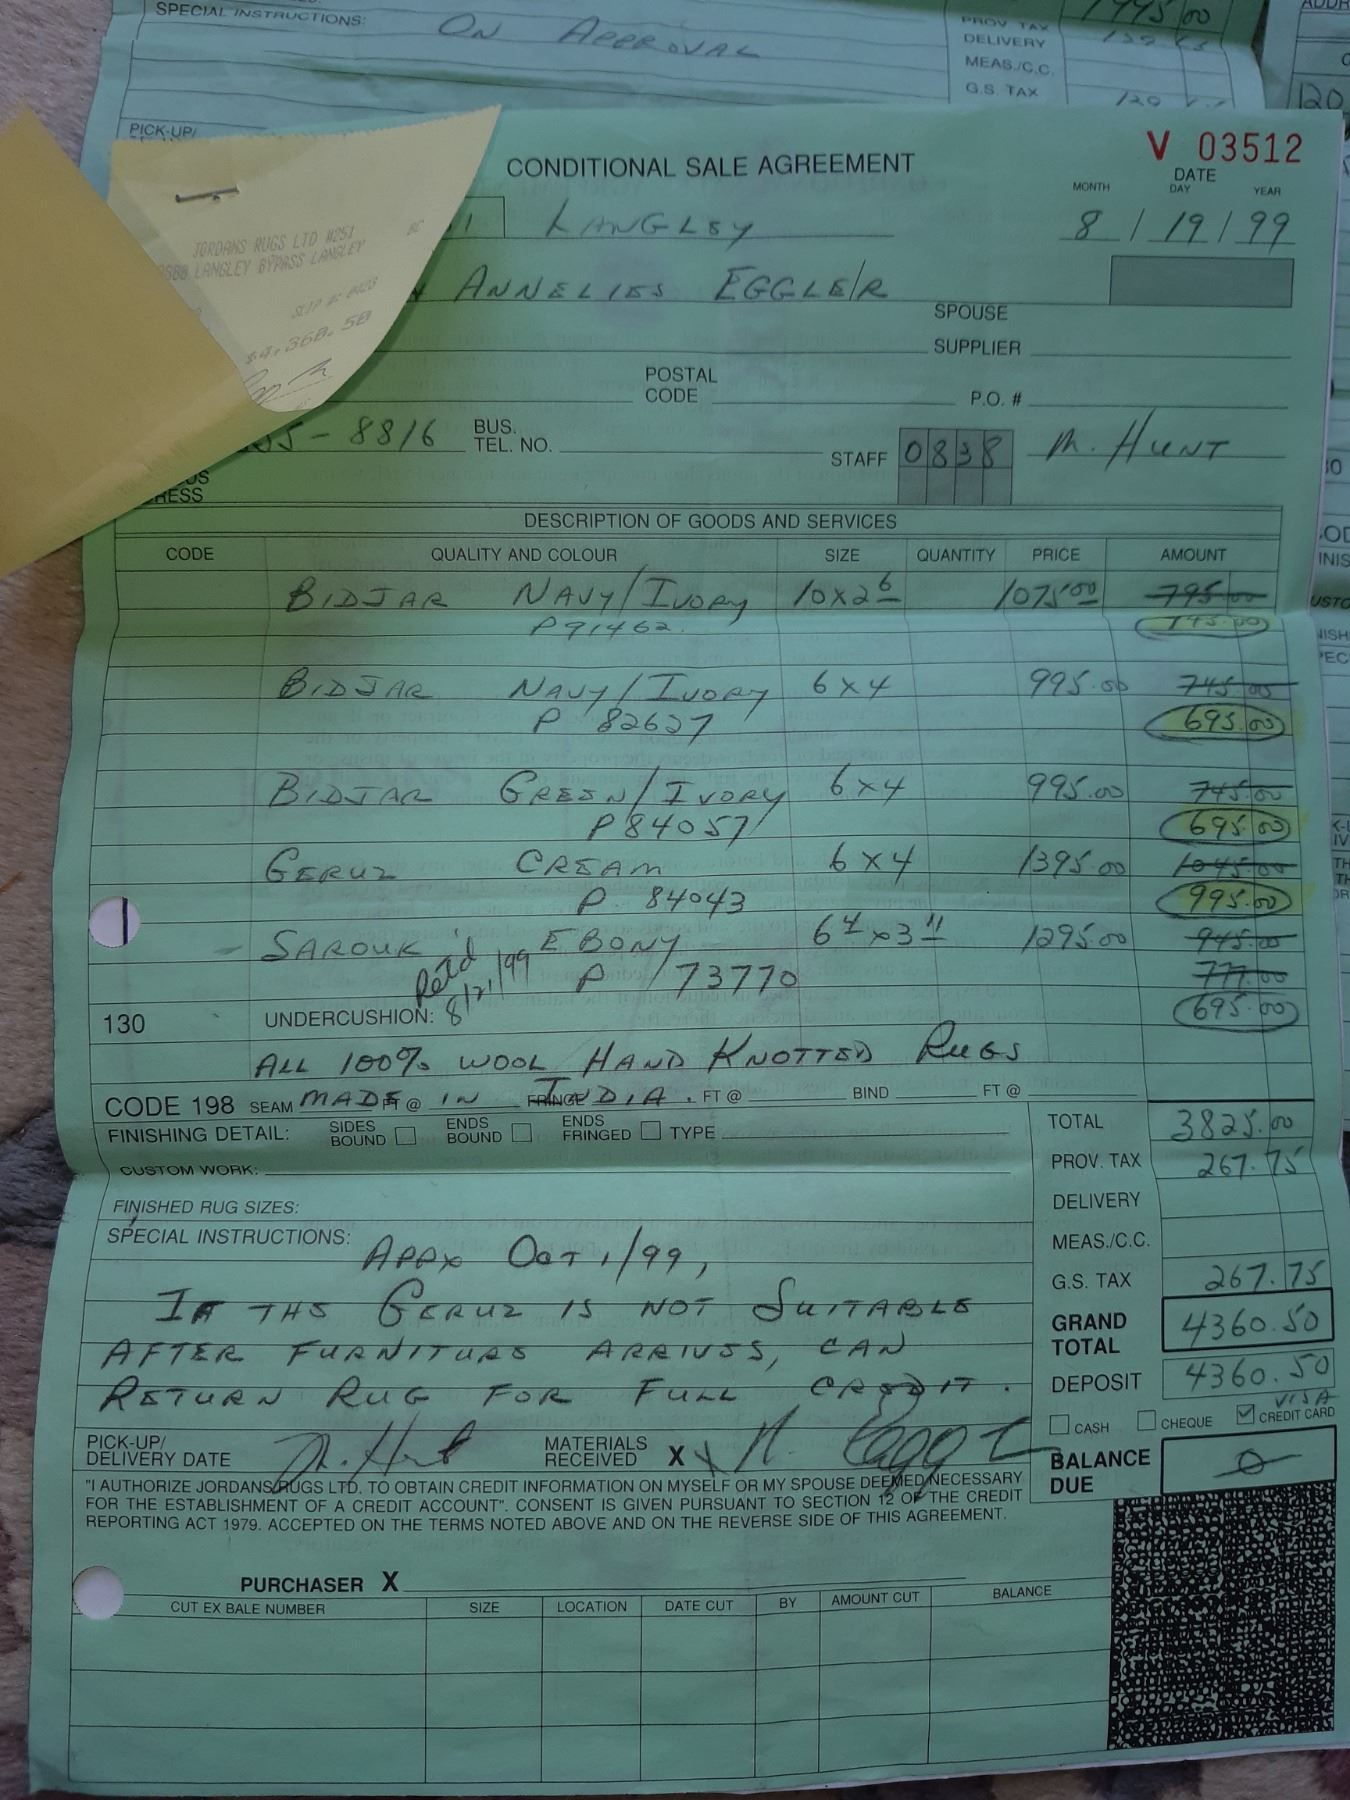 SPECIAL INSTRUCTIONS: ON APPROVAL
1995.00
PROV TAX
DELIVERY
MEAS./C.C.
G.S. TAX
PICK-UP/
CONDITIONAL SALE AGREEMENT
V 03512
DATE
MONTH DAY YEAR
8 / 19 / 99
LANGLEY
JORDANS RUGS LTD #251
LANGLEY BYPASS LANGLEY BC
$4,360.50
ANNELIES EGGLER
SPOUSE
SUPPLIER
POSTAL CODE
P.O. #
55-8816 BUS. TEL. NO.
STAFF 0838 M. HUNT
DESCRIPTION OF GOODS AND SERVICES
CODE QUALITY AND COLOUR SIZE QUANTITY PRICE AMOUNT
BIDJAR NAVY/IVORY 10x2 6 1075.00 795.00
P91462 745.00
BIDJAR NAVY/IVORY 6x4 995.00 745.00
P 82627 695.00
BIDJAR GREEN/IVORY 6x4 995.00 745.00
P84057 695.00
GERUZ CREAM 6x4 1395.00 1045.00
P. 84043 995.00
SAROUK EBONY 1295.00 945.00
Ret'd 8/21/99 P 73770 777.00
130 UNDERCUSHION: 695.00
ALL 100% WOOL HAND KNOTTED RUGS
CODE 198 SEAM MADE FT @ IN FRINGE INDIA. FT @ BIND FT @
FINISHING DETAIL: SIDES BOUND ENDS BOUND ENDS FRINGED TYPE
TOTAL 3825.00
PROV. TAX 267.75
CUSTOM WORK:
DELIVERY
FINISHED RUG SIZES:
MEAS./C.C.
SPECIAL INSTRUCTIONS: APPX OCT 1/99,
G.S. TAX 267.75
IF THE GERUZ IS NOT SUITABLE
GRAND TOTAL 4360.50
AFTER FURNITURE ARRIVES, CAN
RETURN RUG FOR FULL CREDIT.
DEPOSIT 4360.50
VISA
CASH CHEQUE CREDIT CARD
PICK-UP/ DELIVERY DATE M. Hunt MATERIALS RECEIVED X
BALANCE DUE 0
"I AUTHORIZE JORDANS RUGS LTD. TO OBTAIN CREDIT INFORMATION ON MYSELF OR MY SPOUSE DEEMED NECESSARY
FOR THE ESTABLISHMENT OF A CREDIT ACCOUNT". CONSENT IS GIVEN PURSUANT TO SECTION 12 OF THE CREDIT
REPORTING ACT 1979. ACCEPTED ON THE TERMS NOTED ABOVE AND ON THE REVERSE SIDE OF THIS AGREEMENT.
PURCHASER X
CUT EX BALE NUMBER SIZE LOCATION DATE CUT BY AMOUNT CUT BALANCE